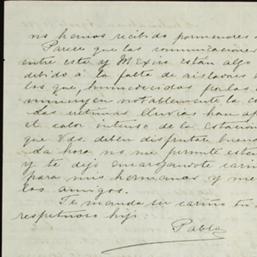 no hemos recibido pormenores
Parece que las comunicaciones
entre este y Mexico estan algo
debido á la falta de aisladores
los que, humedecidos por las
minuyen notablemente la
das últimas lluvias han
el calor intenso de la estacion
que Vds. deben disfrutar buena
da hora no me permite
y te dejo encargandote
para mis hermanas y
los amigos.
Te manda su cariño tu
respetuoso hijo
Pablo